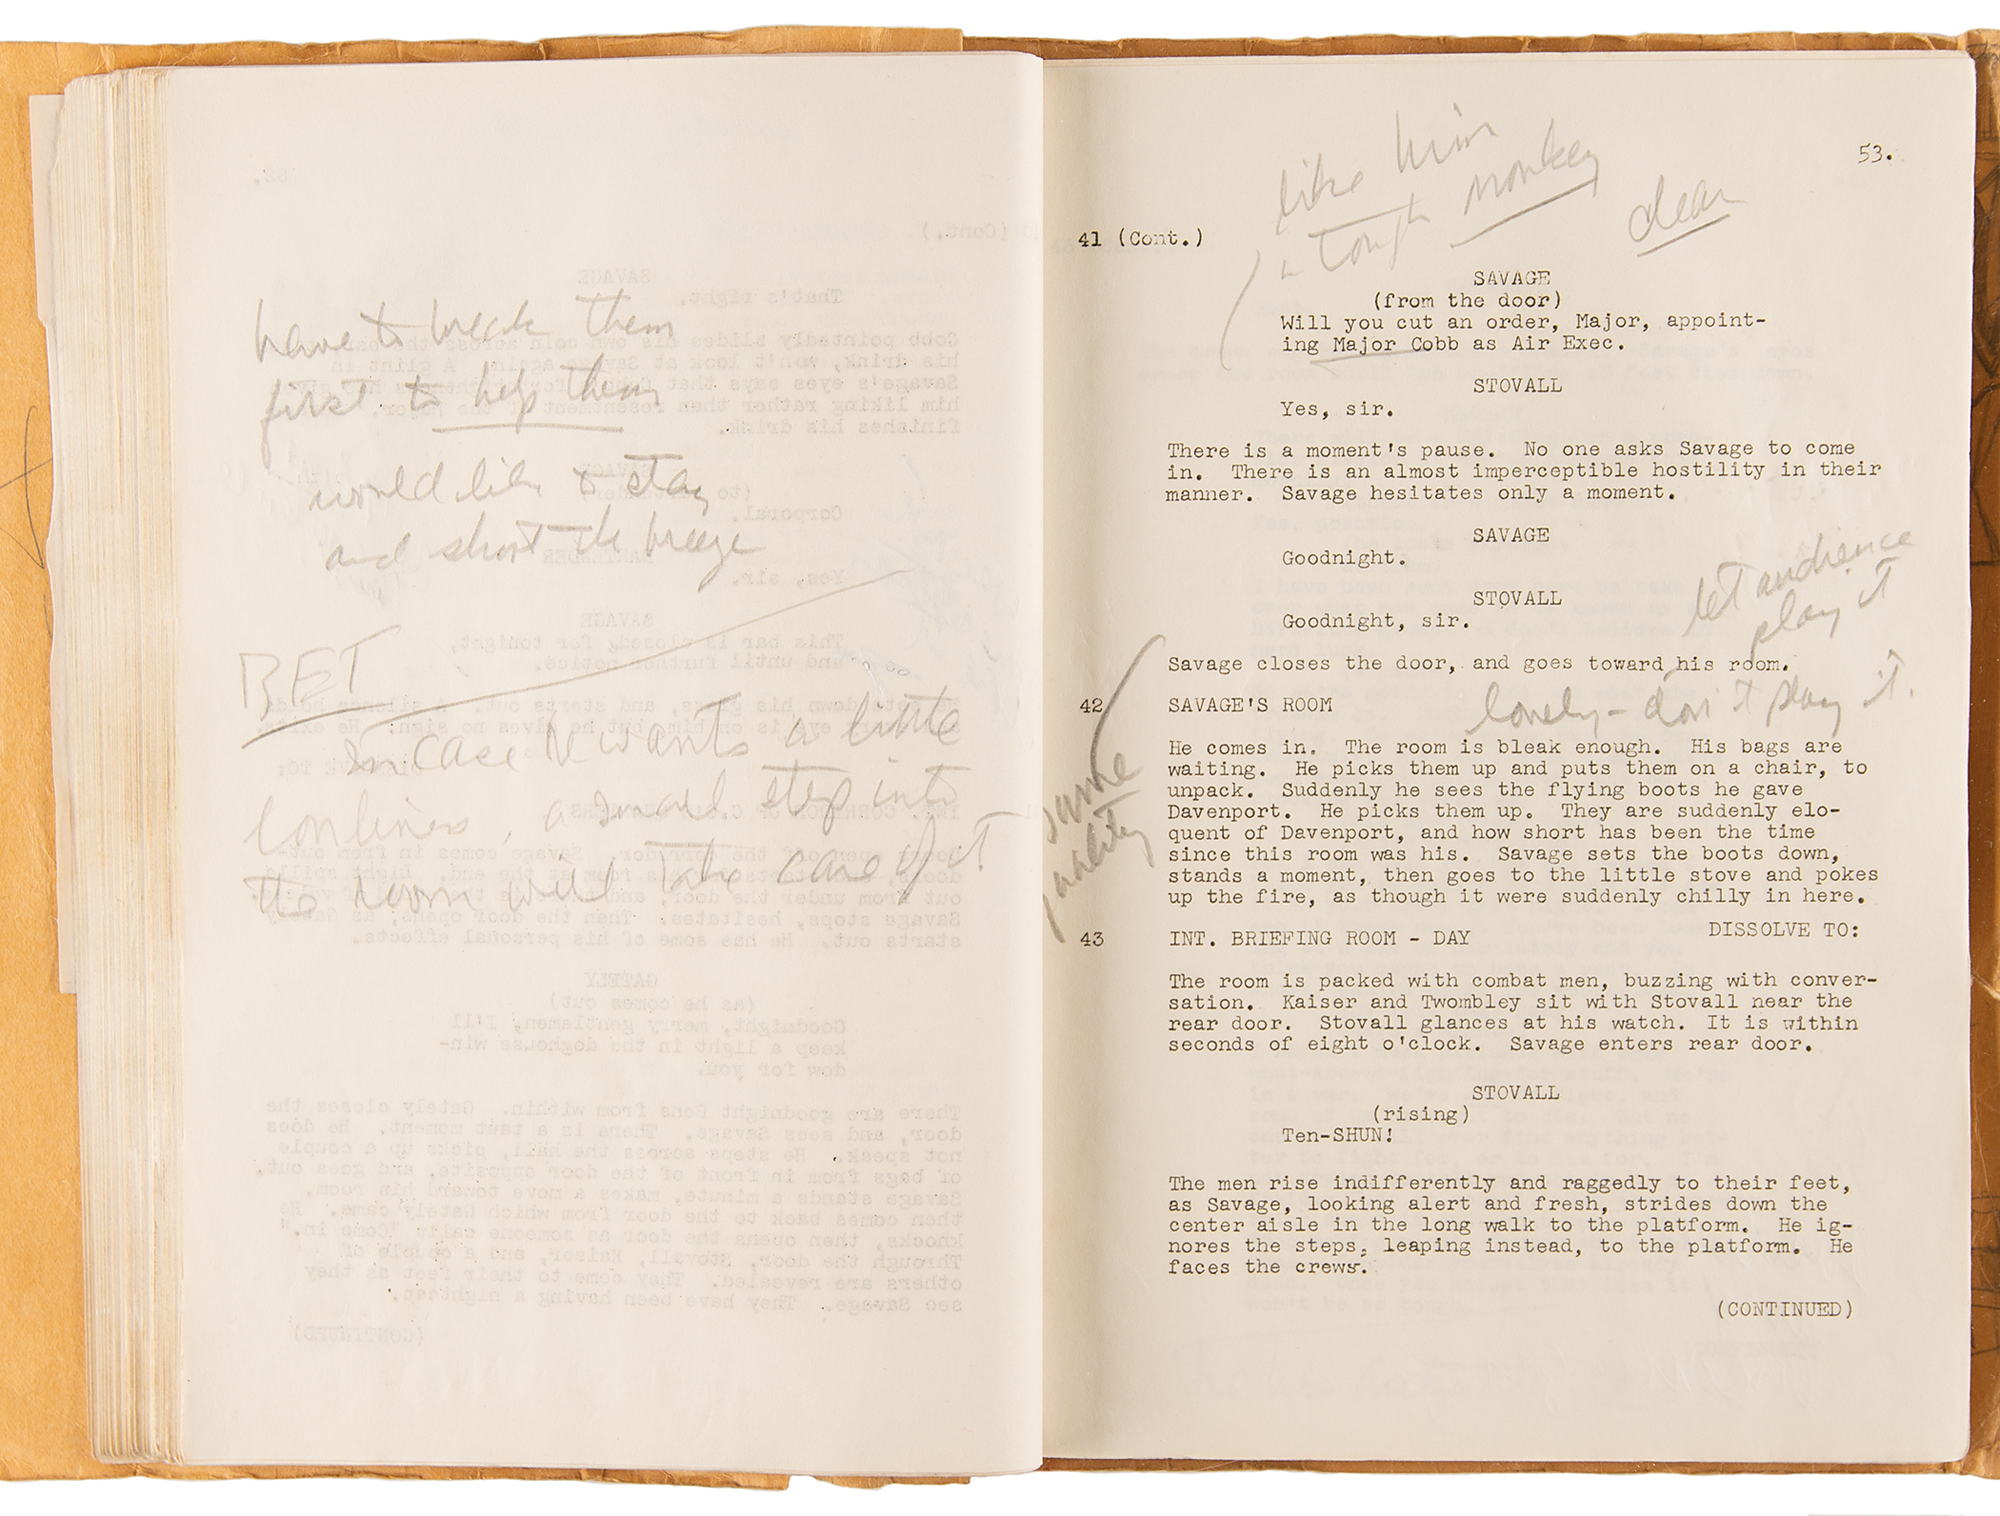 have to break them
first to help them
would like to stay
and shoot the breeze
BET
In case he wants a little
lonliness, a small step into
the room will take care of it!
53.
like him
a tough monkey
clear
41 (Cont.)
SAVAGE
(from the door)
Will you cut an order, Major, appoint-
ing Major Cobb as Air Exec.
STOVALL
Yes, sir.
There is a moment's pause. No one asks Savage to come
in. There is an almost imperceptible hostility in their
manner. Savage hesitates only a moment.
SAVAGE
Goodnight.
STOVALL
Goodnight, sir.
let audience
play it
Savage closes the door, and goes toward his room.
42 SAVAGE'S ROOM
lonely - don't play it.
same
quality
He comes in. The room is bleak enough. His bags are
waiting. He picks them up and puts them on a chair, to
unpack. Suddenly he sees the flying boots he gave
Davenport. He picks them up. They are suddenly elo-
quent of Davenport, and how short has been the time
since this room was his. Savage sets the boots down,
stands a moment, then goes to the little stove and pokes
up the fire, as though it were suddenly chilly in here.
DISSOLVE TO:
43 INT. BRIEFING ROOM - DAY
The room is packed with combat men, buzzing with conver-
sation. Kaiser and Twombley sit with Stovall near the
rear door. Stovall glances at his watch. It is within
seconds of eight o'clock. Savage enters rear door.
STOVALL
(rising)
Ten-SHUN!
The men rise indifferently and raggedly to their feet,
as Savage, looking alert and fresh, strides down the
center aisle in the long walk to the platform. He ig-
nores the steps, leaping instead, to the platform. He
faces the crews.
(CONTINUED)